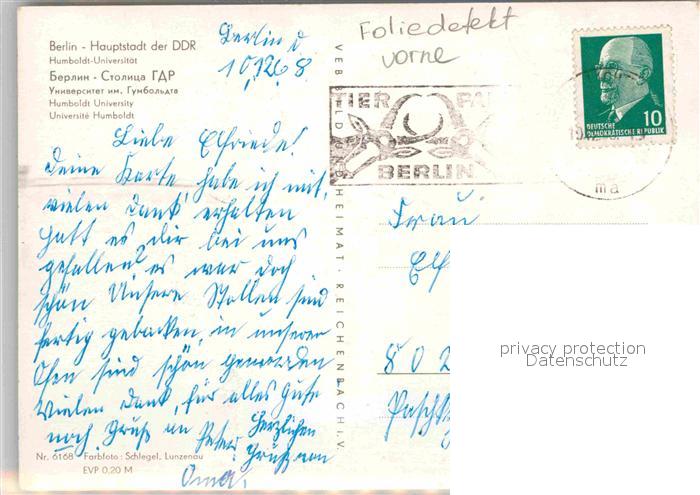 Berlin - Hauptstadt der DDR
Humboldt-Universität
Берлин - Столица ГДР
Университет им. Гумбольдта
Humboldt University
Université Humboldt
Berlin d
10.12.68
Foliedefekt
vorne
TIER PA
BERLIN
10
DEUTSCHE
DEMOKRATISCHE REPUBLIK
ma
Liebe Elfriede!
Deine Karte, habe ich mit
vielen Dank, erhalten
hatt es dir bei uns
gefallen? es war doch
schön Unsere Stollen sind
fertig gebacken, in unserer
Ofen sind schön geworden
Vielen Dank, für alles Gute
noch Gruß an Peter. Herzlichen
Gruß von
Oma.
Frau
Elf
802
VEB BILD HEIMAT · REICHENBACH i. V.
privacy protection
Datenschutz
Nr. 6168 Farbfoto: Schlegel, Lunzenau
EVP 0,20 M